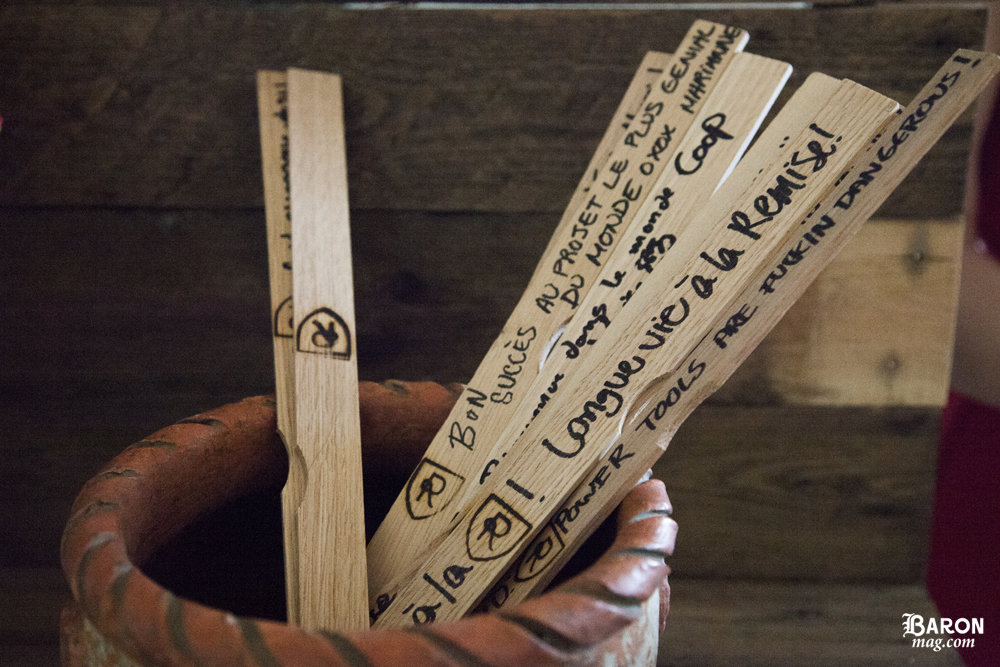 BON SUCCÈS AU PROJET LE PLUS GENIAL
DU MONDE OXOX MARIANNE
dans le monde Coop
Longue vie à la Remise!
à la R!
R/POWER TOOLS ARE FUCKIN DANGEROUS!
R
BARON
mag.com